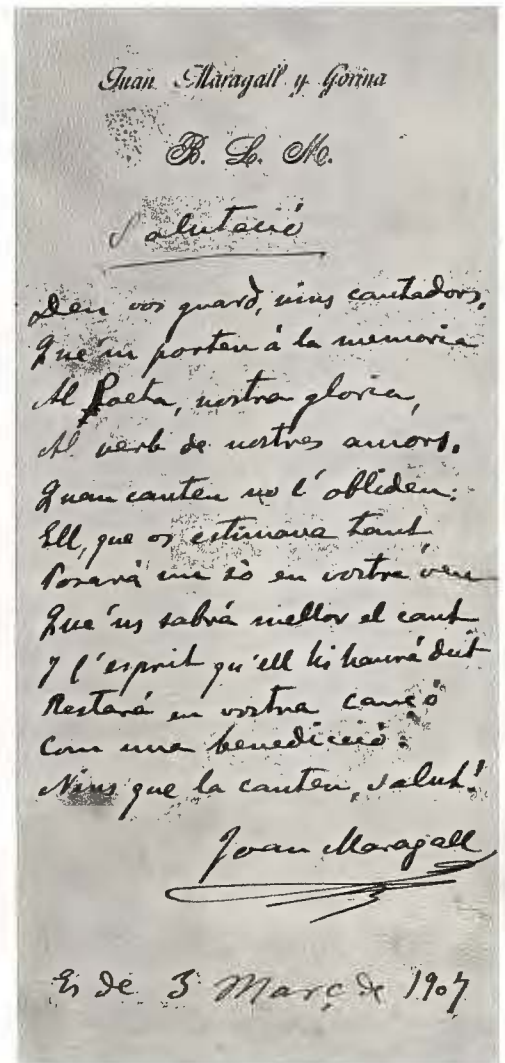 Juan Maragall y Gorina
B. L. M.
Salutació
Deu vos guard, nins cantadors,
Que'm porteu á la memoria
Al Poeta, nostra gloria,
Al verb de nostres amors.
Quan canteu no l'oblideu:
Ell, que os estimava tant
Posará un só en vostra veu
Que'ns sabrá mellor el cant
Y l'esprit qu'ell hi haurá dut
Restará en vostra cançó
Com una benedicció:
Nins que la canteu, salut!
Joan Maragall
Es de 3 Març de 1907